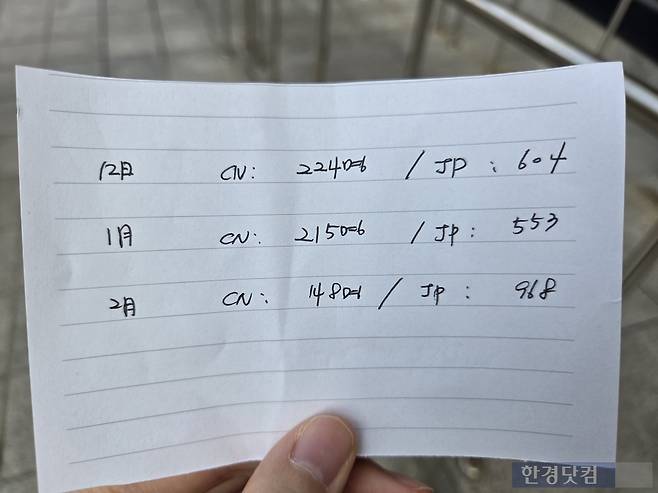 12月 CN: 224명 / JP: 604
1月 CN: 215명 / JP: 553
2月 CN: 148명 / JP: 968
한경닷컴